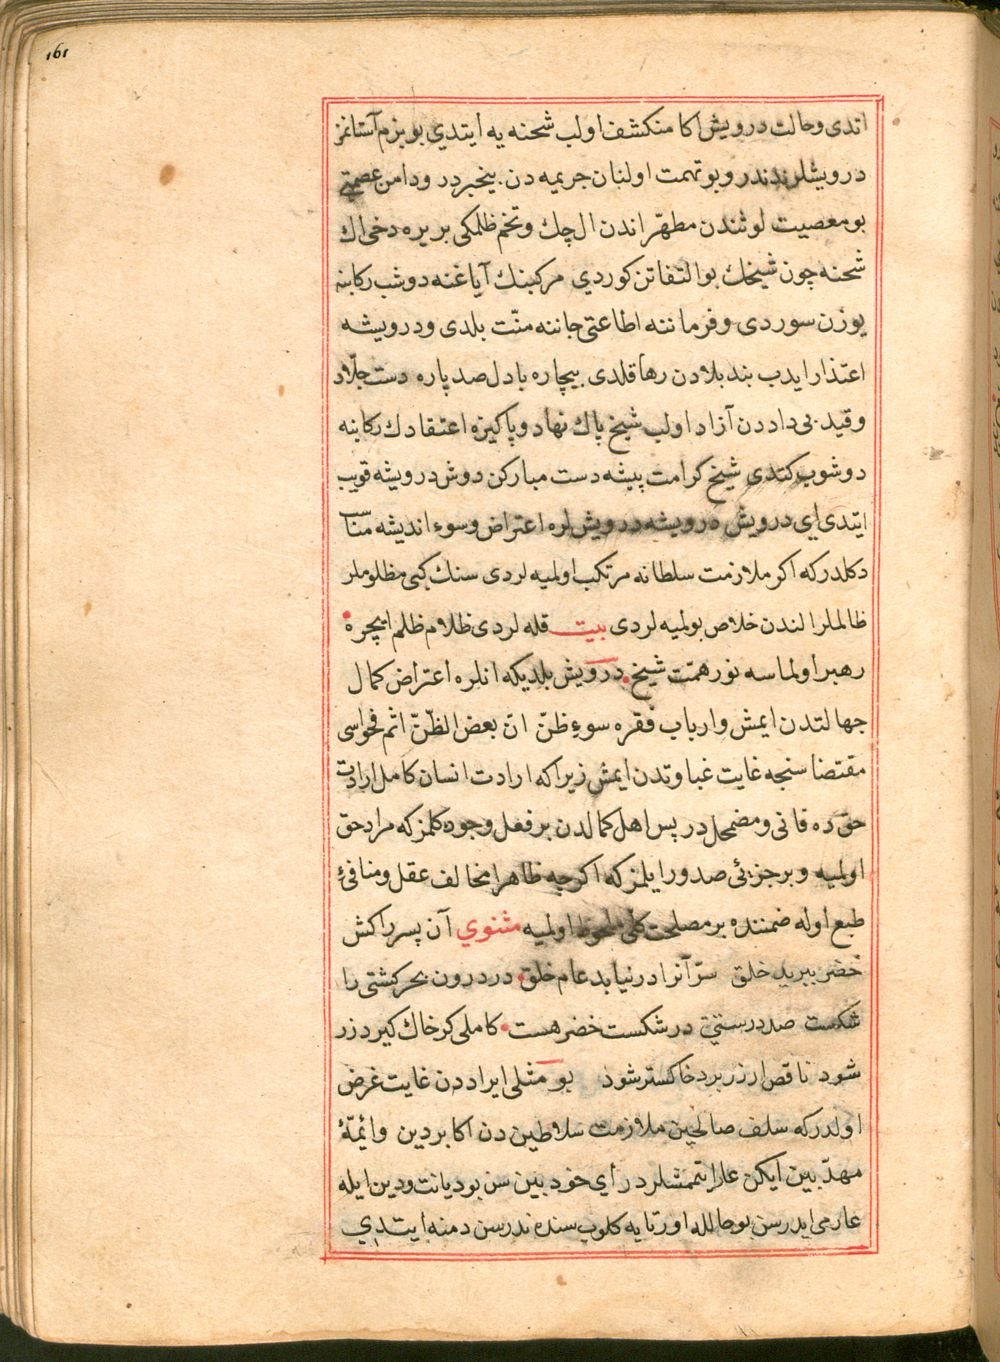 161
اتدی وحالت درویش اکا منکشف اولب شحنه یه ایتدی بو بزم آستانمز
درویشلرندندر وبو تهمت اولنان جریمه دن بیخبردر ودامن عصمتی
بو معصیت لوثندن مطهّر اندن ال چك وتخم ظلمکی بر یره دخی اك
شحنه چون شیخك بو التفاتن کوردی مرکبنك آیاغنه دوشب رکابنه
یوزن سوردی وفرماننه اطاعتی جاننه منّت بلدی ودرویشه
اعتذار ایدب بند بلادن رها قلدی بیچاره بادل صد پاره دست جلّاد
وقید بی داددن آزاد اولب شیخ پاك نهاد وپاکیزه اعتقادك رکابنه
دوشوب کتدی شیخ کرامت پیشه دست مبارکن دوش درویشه قویب
ایتدی ای درویش درویشه درویش لره اعتراض وسوء اندیشه مناسب
دکلدر که اکر ملازمت سلطانه مرتکب اولمیه لردی سنك کبی مظلوملر
ظالملر الندن خلاص بولمیه لردی بیت قله لردی ظلام ظلم ایچره
رهبر اولماسه نور همّت شیخ درویش بلدیکه انلره اعتراض کمال
جهالتدن ایمش وارباب فقره سوء ظنّ انّ بعض الظّنّ اثم فحواسی
مقتضاسنجه غایت غباوتدن ایمش زیرا که ارادت انسان کامل ارادت
حق ده فانی ومضمحل در پس اهل کمالدن بر فعل وجوده کلمز که مراد حق
اولمیه وبر جزئی صدور ایلمز که اکرچه ظاهرا مخالف عقل ومنافئ
طبع اوله ضمننده بر مصلحت کلّی ملحوظ اولمیه مثنوي آن پسر را کش
خضر ببرید خلق سرّ آنرا در نیابد عام خلق در درون بحر کشتی را
شکست صد درستی در شکست خضر هست کاملی کر خاك کیرد زر
شود ناقص ار زر برد خاکستر شود بو مثلی ایراددن غایت غرض
اولدر که سلف صالحین ملازمت سلاطین دن اکابر دین وائمّهٔ
مهدّیین ایکن عار اتممشلردر ای خود بین سن بو دیانت ودین ایله
عارمی ایدرسن بو حاللله اورتایه کلوب سنده ندرسن دمنه ایتدي